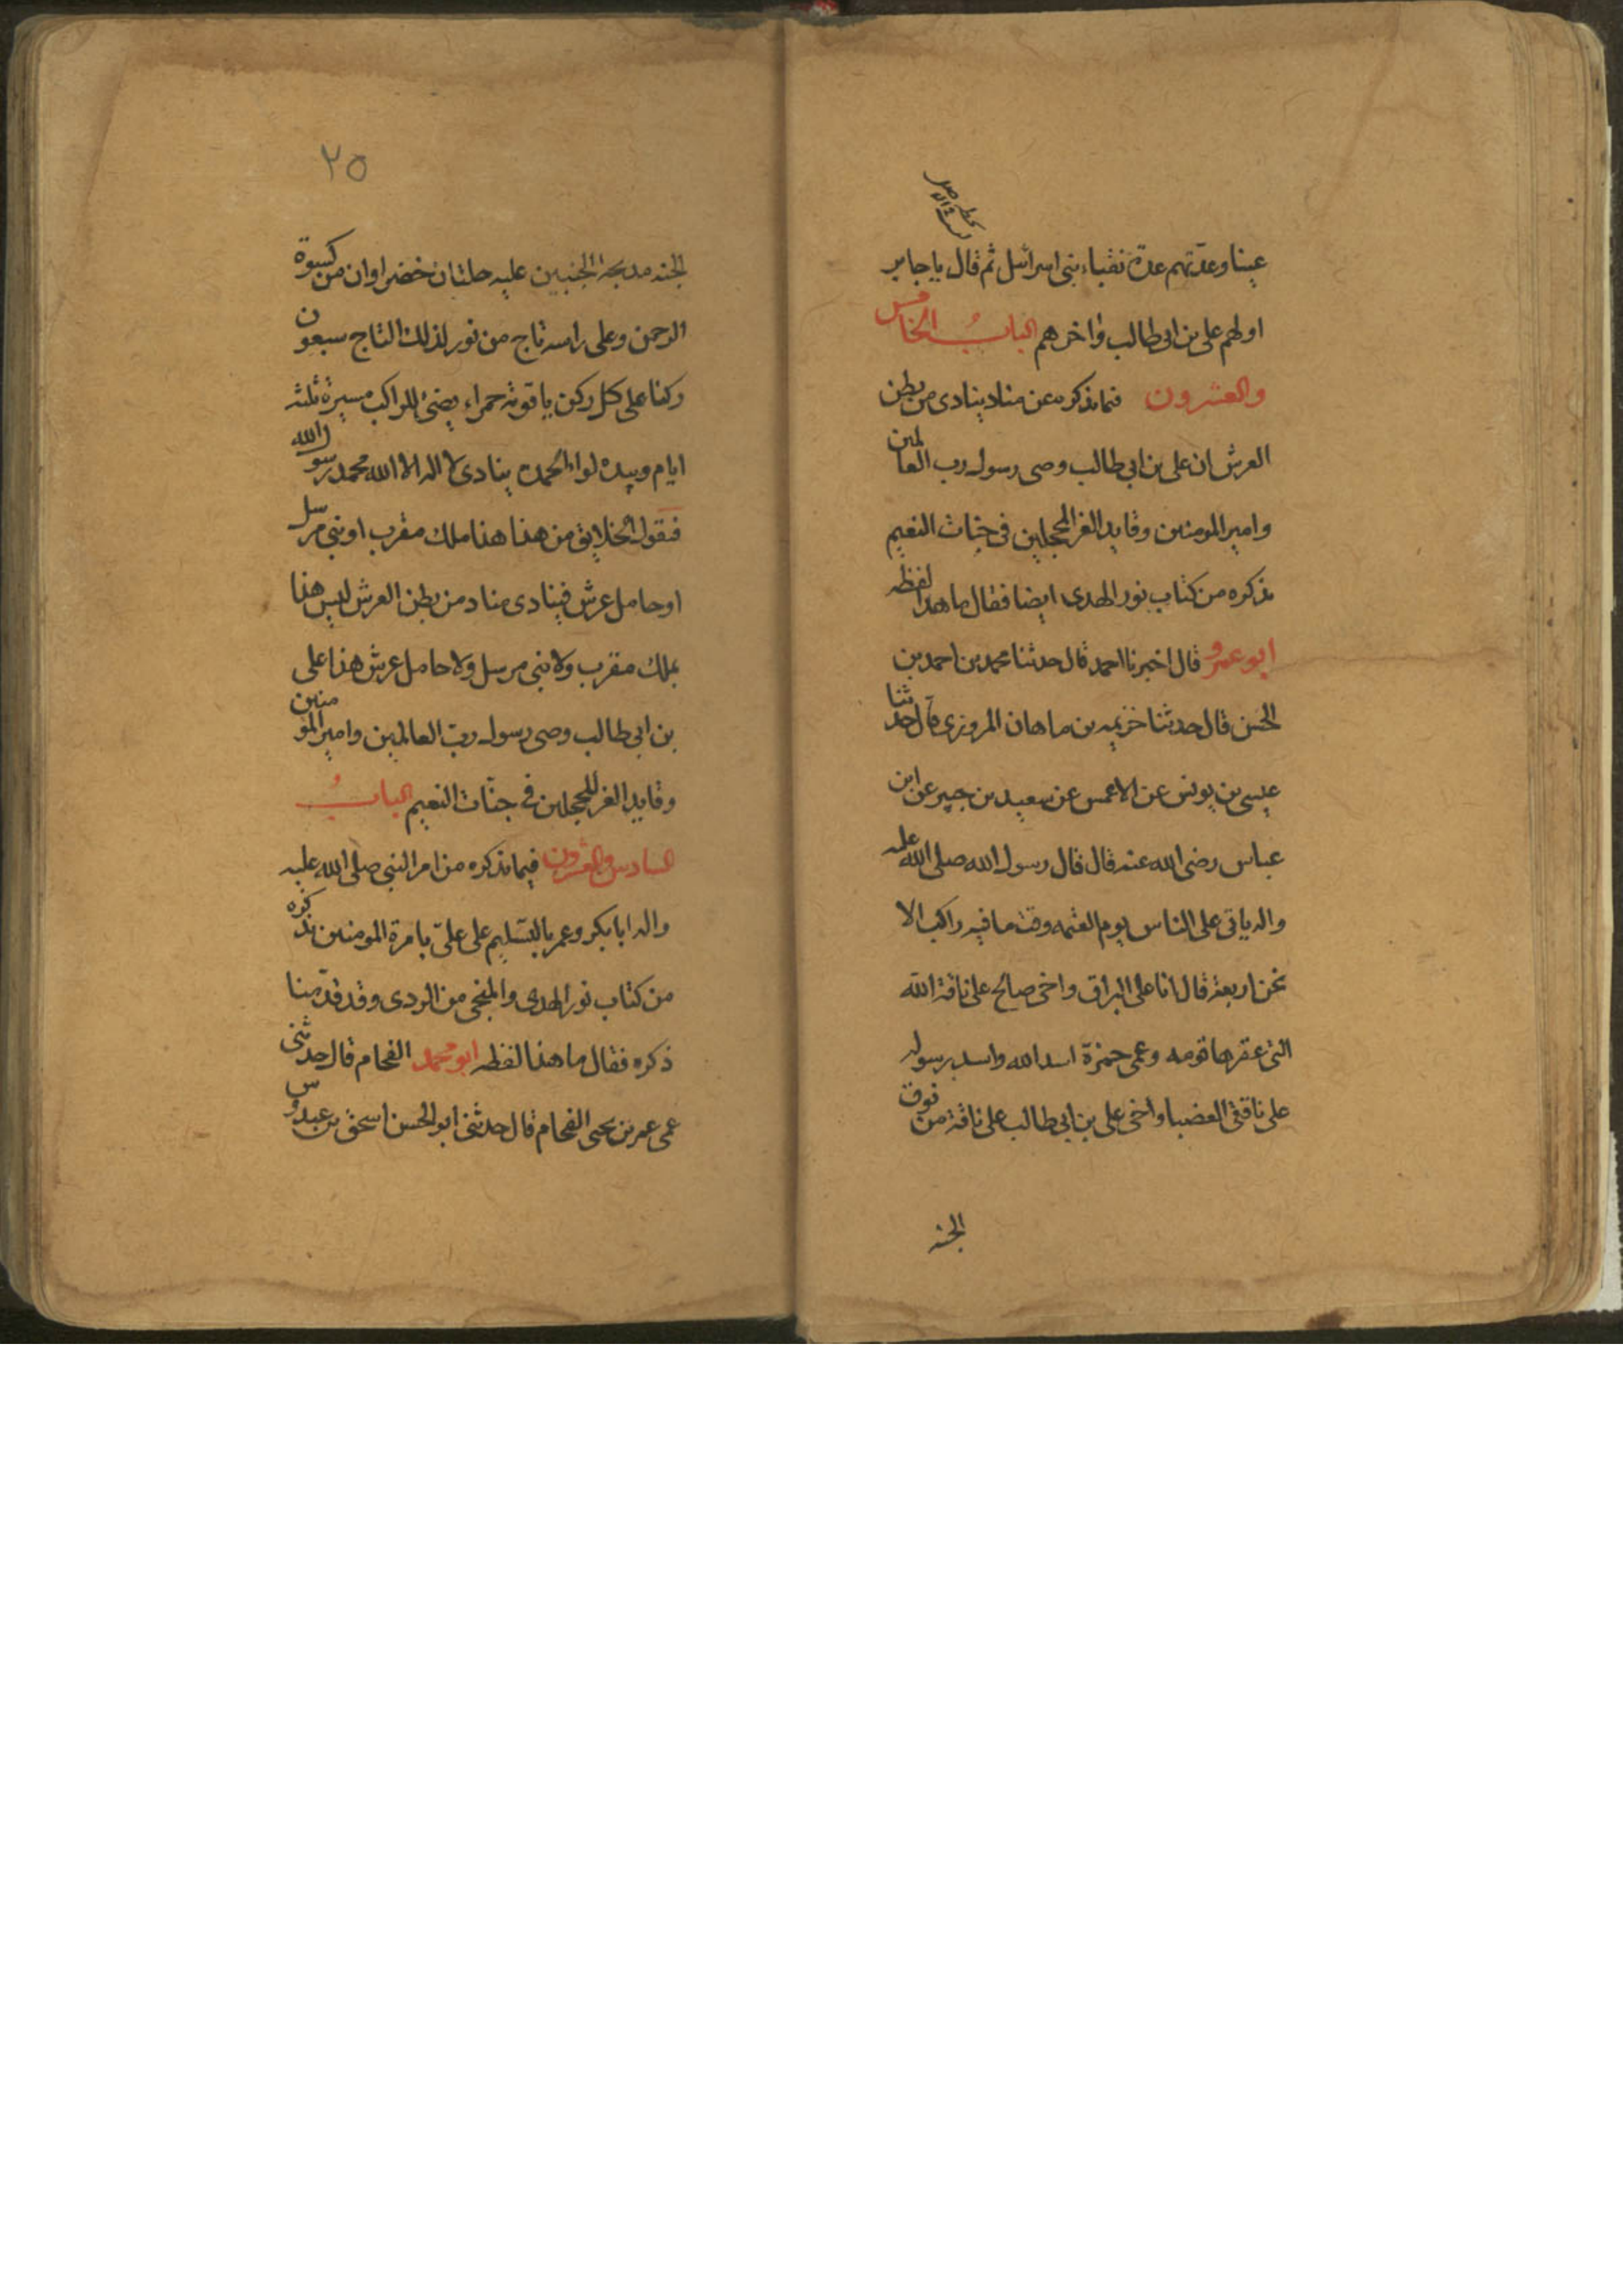 عينا وعدتهم عدة نقباء بنى اسرائيل ثم قال يا جابر
اولهم على بن ابى طالب واخرهم الباب الخامس
والعشرون فيما نذكره عن مناد ينادى من بطن
العرش ان على بن ابي طالب وصى رسول رب العالمين
وامير المومنين وقايد الغر المحجلين فى جنات النعيم
نذكره من كتاب نور الهدى ايضا فقال ما هذا لفظه
ابو عمرو قال اخبرنا احمد قال حدثنا محمد بن احمد بن
الحسن قال حدثنا خزيمه بن ماهان المروزى قال حدثنا
عيسى بن يونس عن الاعمس عن سعيد بن جبير عن ابن
عباس رضى الله عنه قال قال رسول الله صلى الله عليه
واله ياتى على الناس يوم القيمه وقت ما فيه راكب الا
نحن اربعة فقال انا على البراق واخى صالح على ناقة الله
التى عقرها قومه وعمى حمزة اسد الله واسد رسوله
على ناقتى العضبا واخى على بن ابي طالب على ناقة من نوق
الجنه
٢٥
الجنه مدبجة الجنبين عليه حلتان خضراوان من كسوة
الرحمن وعلى راسه تاج من نور لذلك التاج سبعون
ركنا على كل ركن ياقوتة حمراء يضئ للراكب مسيرة ثلثه
ايام وبيده لواء الحمد ينادى لا اله الا الله محمد رسول الله
فيقول الخلايق من هذا هذا ملك مقرب او نبي مرسل
او حامل عرش فينادى مناد من بطن العرش ليس هذا
بملك مقرب ولا نبى مرسل ولا حامل عرش هذا على
بن ابى طالب وصى رسول رب العالمين وامير المومنين
وقايد الغر المحجلين في جنات النعيم الباب
السادس والعشرون فيما نذكره من امر النبى صلى الله عليه
واله ابا بكر وعمر بالتسليم على على بامرة المومنين نذكره
من كتاب نور الهدى والمنجى من الردى وقد قدمنا
ذكره فقال ما هذا لفظه ابو محمد الفحام قال حدثنى
عمى عمر بن يحيى الفحام قال حدثنى ابو الحسن اسحق بن عبدوس